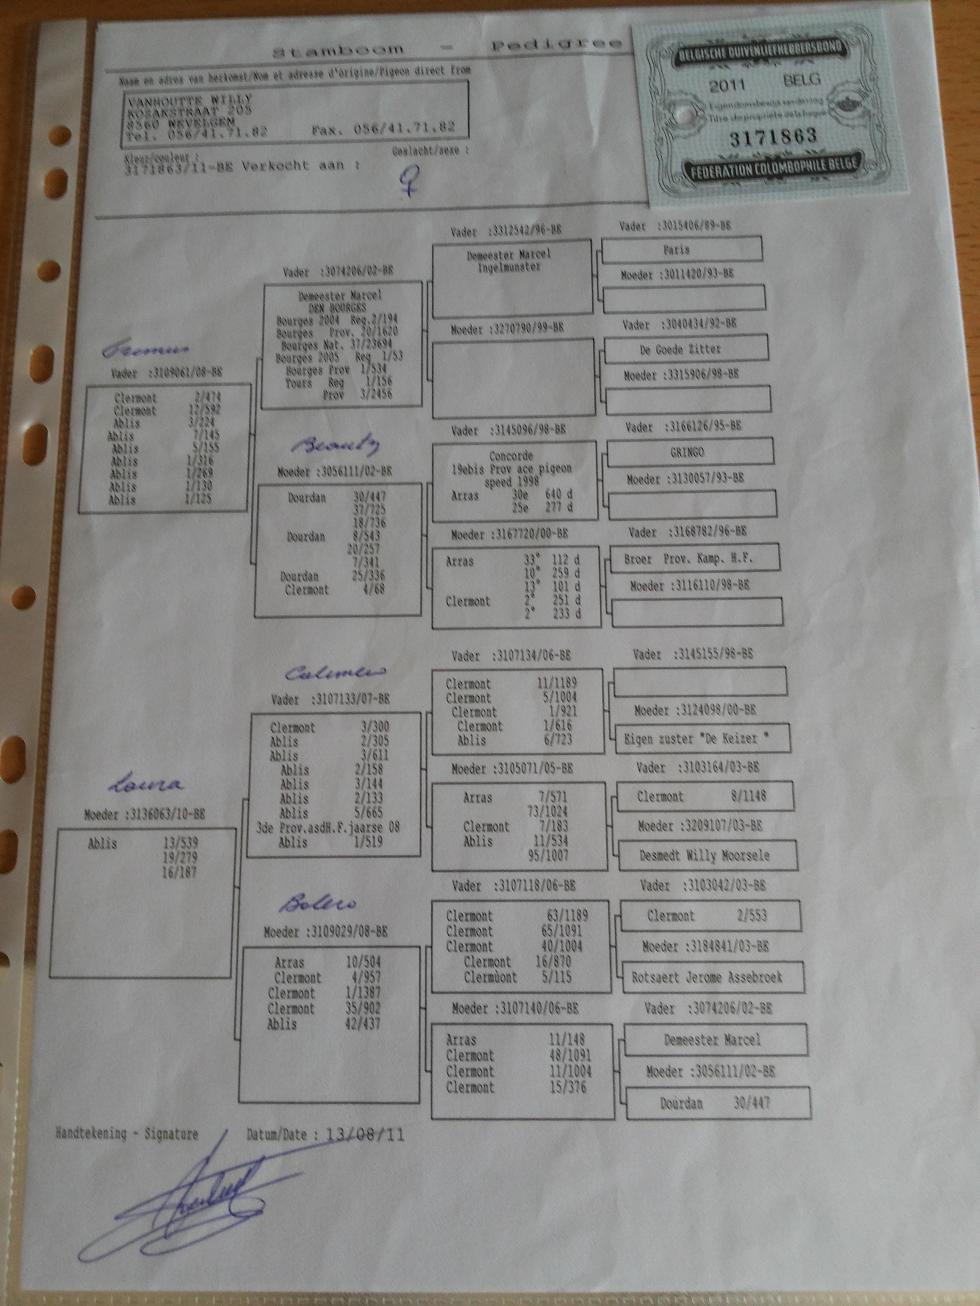 Stamboom - Pedigree
Naam en adres van herkomst/Nom et adresse d'origine/Pigeon direct from
VANHOUTTE WILLY
KOZAKSTRAAT 205
8560 WEVELGEM
Tel. 056/41.71.82 Fax. 056/41.71.82
Kleur/couleur : Geslacht/sexe :
3171863/11-BE Verkocht aan : ♀
BELGISCHE DUIVENLIEFHEBBERSBOND
2011 BELG
Eigendomsbewijs van de ring
Titre de propriété de la bague
3171863
FEDERATION COLOMBOPHILE BELGE
Primus
Vader :3109061/08-BE
Clermont 2/474
Clermont 12/592
Ablis 3/224
Ablis 7/145
Ablis 5/155
Ablis 1/316
Ablis 1/269
Ablis 1/130
Ablis 1/125
Laura
Moeder :3136063/10-BE
Ablis 13/539
19/279
16/187
Vader :3074206/02-BE
Demeester Marcel
DEN BOURGES
Bourges 2004 Reg.2/194
Bourges Prov. 20/1620
Bourges Nat. 37/23694
Bourges 2005 Reg 1/53
Bourges Prov 1/534
Tours Reg 1/156
Prov 3/2456
Beauty
Moeder :3056111/02-BE
Dourdan 30/447
37/725
18/736
Dourdan 8/543
20/257
7/341
Dourdan 25/336
Clermont 4/68
Calimero
Vader :3107133/07-BE
Clermont 3/300
Ablis 2/305
Ablis 3/611
Ablis 2/158
Ablis 3/144
Ablis 2/133
Ablis 5/665
3de Prov.asdH.F.jaarse 08
Ablis 1/519
Bolero
Moeder :3109029/08-BE
Arras 10/504
Clermont 4/957
Clermont 1/1387
Clermont 35/902
Ablis 42/437
Vader :3312542/96-BE
Demeester Marcel
Ingelmunster
Moeder :3270790/99-BE
Vader :3145096/98-BE
Concorde
19ebis Prov ace pigeon
speed 1998
Arras 30e 640 d
25e 277 d
Moeder :3167720/00-BE
Arras 33° 112 d
10° 259 d
13° 101 d
Clermont 2° 251 d
2° 233 d
Vader :3107134/06-BE
Clermont 11/1189
Clermont 5/1004
Clermont 1/921
Clermont 1/616
Ablis 6/723
Moeder :3105071/05-BE
Arras 7/571
73/1024
Clermont 7/183
Ablis 11/534
95/1007
Vader :3107118/06-BE
Clermont 63/1189
Clermont 65/1091
Clermont 40/1004
Clermont 16/870
Clermùont 5/115
Moeder :3107140/06-BE
Arras 11/148
Clermont 48/1091
Clermont 11/1004
Clermont 15/376
Vader :3015406/89-BE
Paris
Moeder :3011420/93-BE
Vader :3040434/92-BE
De Goede Zitter
Moeder :3315906/98-BE
Vader :3166126/95-BE
GRINGO
Moeder :3130057/93-BE
Vader :3168782/96-BE
Broer Prov. Kamp. H.F.
Moeder :3116110/98-BE
Vader :3145155/98-BE
Moeder :3124098/00-BE
Eigen zuster "De Keizer "
Vader :3103164/03-BE
Clermont 8/1148
Moeder :3209107/03-BE
Desmedt Willy Moorsele
Vader :3103042/03-BE
Clermont 2/553
Moeder :3184841/03-BE
Rotsaert Jerome Assebroek
Vader :3074206/02-BE
Demeester Marcel
Moeder :3056111/02-BE
Dourdan 30/447
Handtekening - Signature Datum/Date : 13/08/11